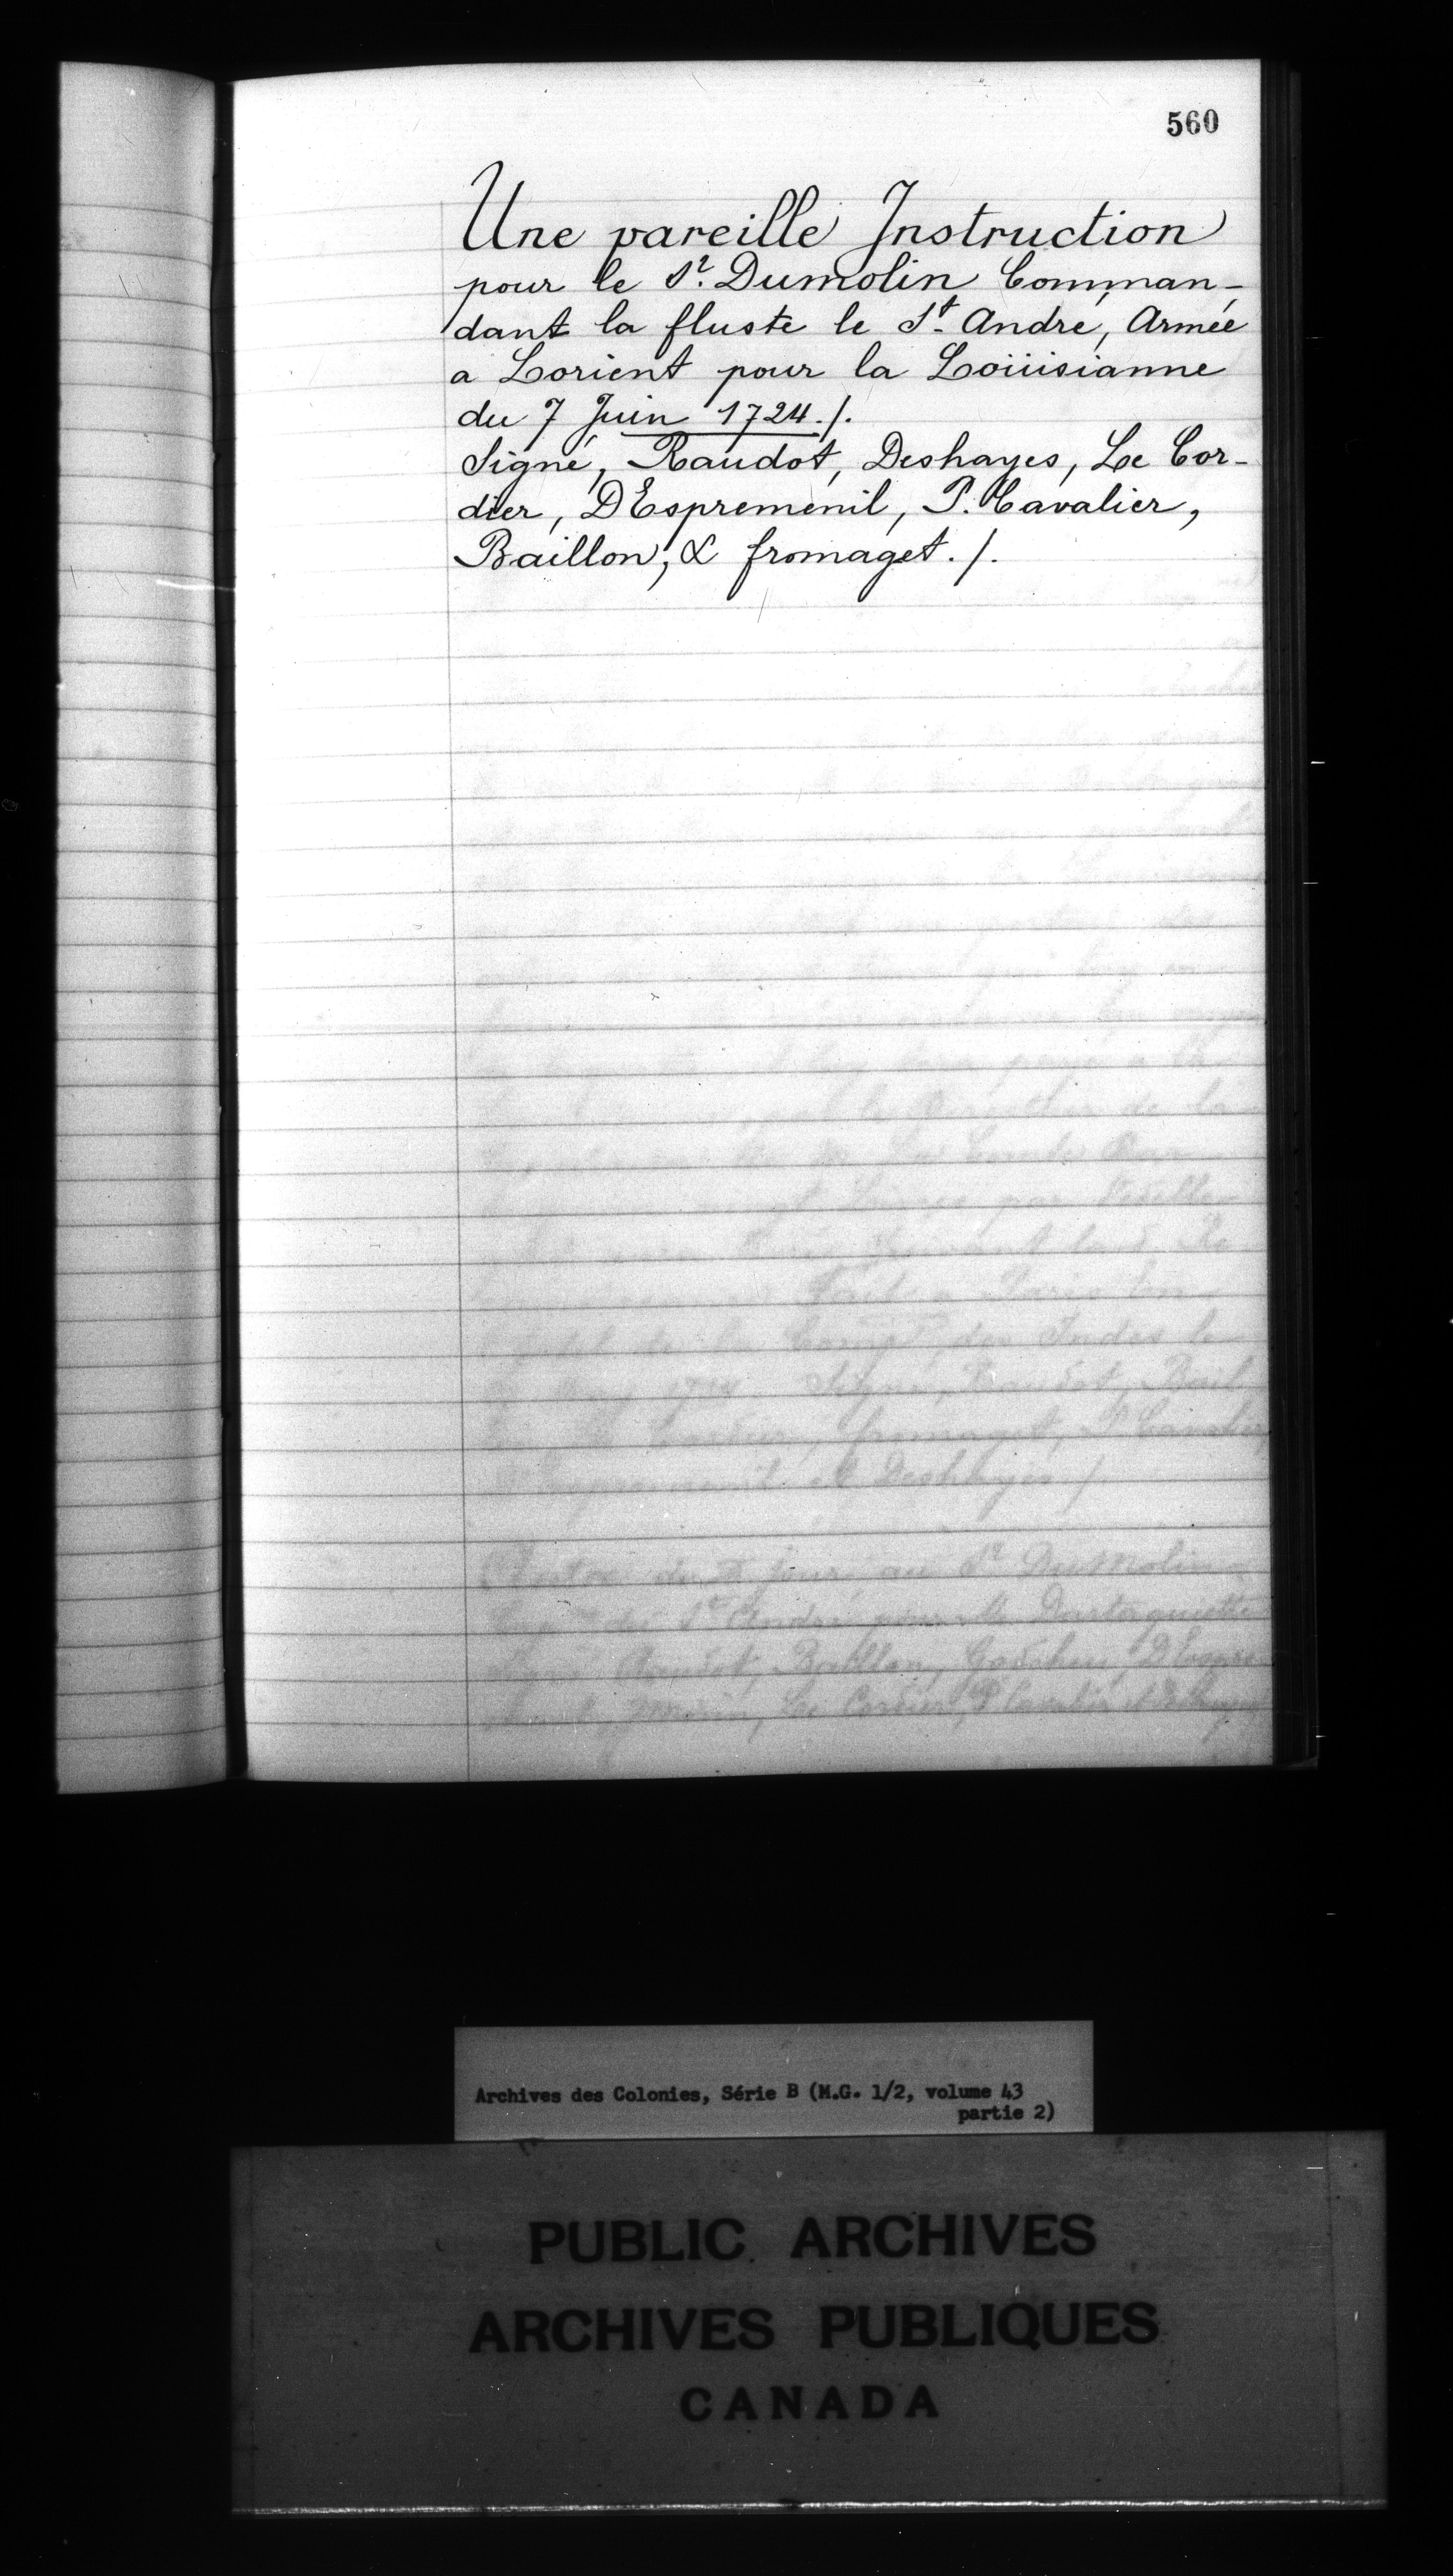 560
Une pareille Instruction
pour le Sr. Dumolin Comman-
dant la fluste le St. André, Armée
a Lorient pour la Loüisianne
du 7 Juin 1724./.
Signé, Raudot, Deshayes, Le Cor-
dier, DEspremenil, P. Cavalier,
Baillon, & fromaget./.
Archives des Colonies, Série B (M.G. 1/2, volume 43
partie 2)
PUBLIC ARCHIVES
ARCHIVES PUBLIQUES
CANADA